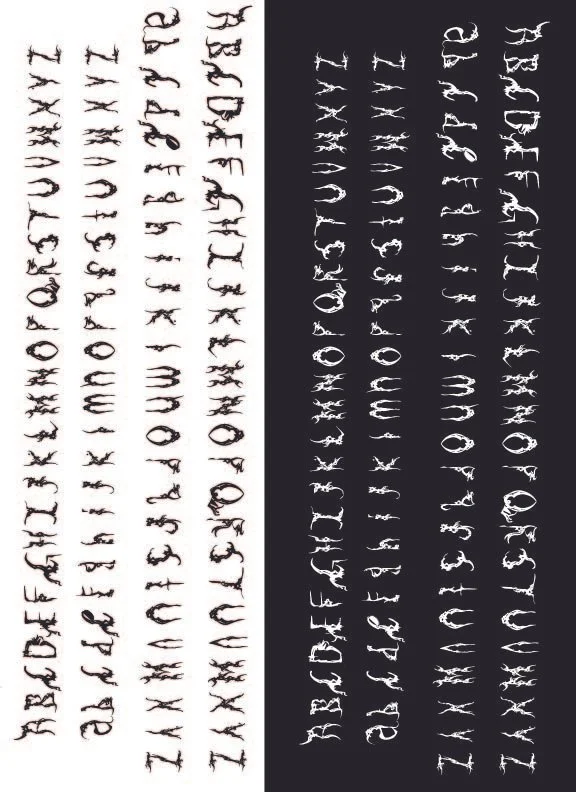 ABCDEFGHIJKLMNOPQRSTUVWXYZ
abcdefghijklmnopqrstuvwxyz
abcdefghijklmnopqrstuvwxyz
ABCDEFGHIJKLMNOPQRSTUVWXYZ
ABCDEFGHIJKLMNOPQRSTUVWXYZ
abcdefghijklmnopqrstuvwxyz
abcdefghijklmnopqrstuvwxyz
ABCDEFGHIJKLMNOPQRSTUVWXYZ